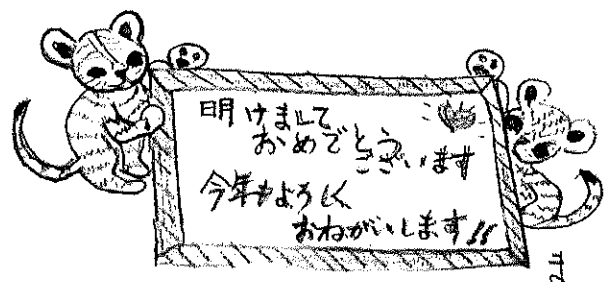 明けまして
おめでとう
ございます
今年もよろしく
おねがいします!!